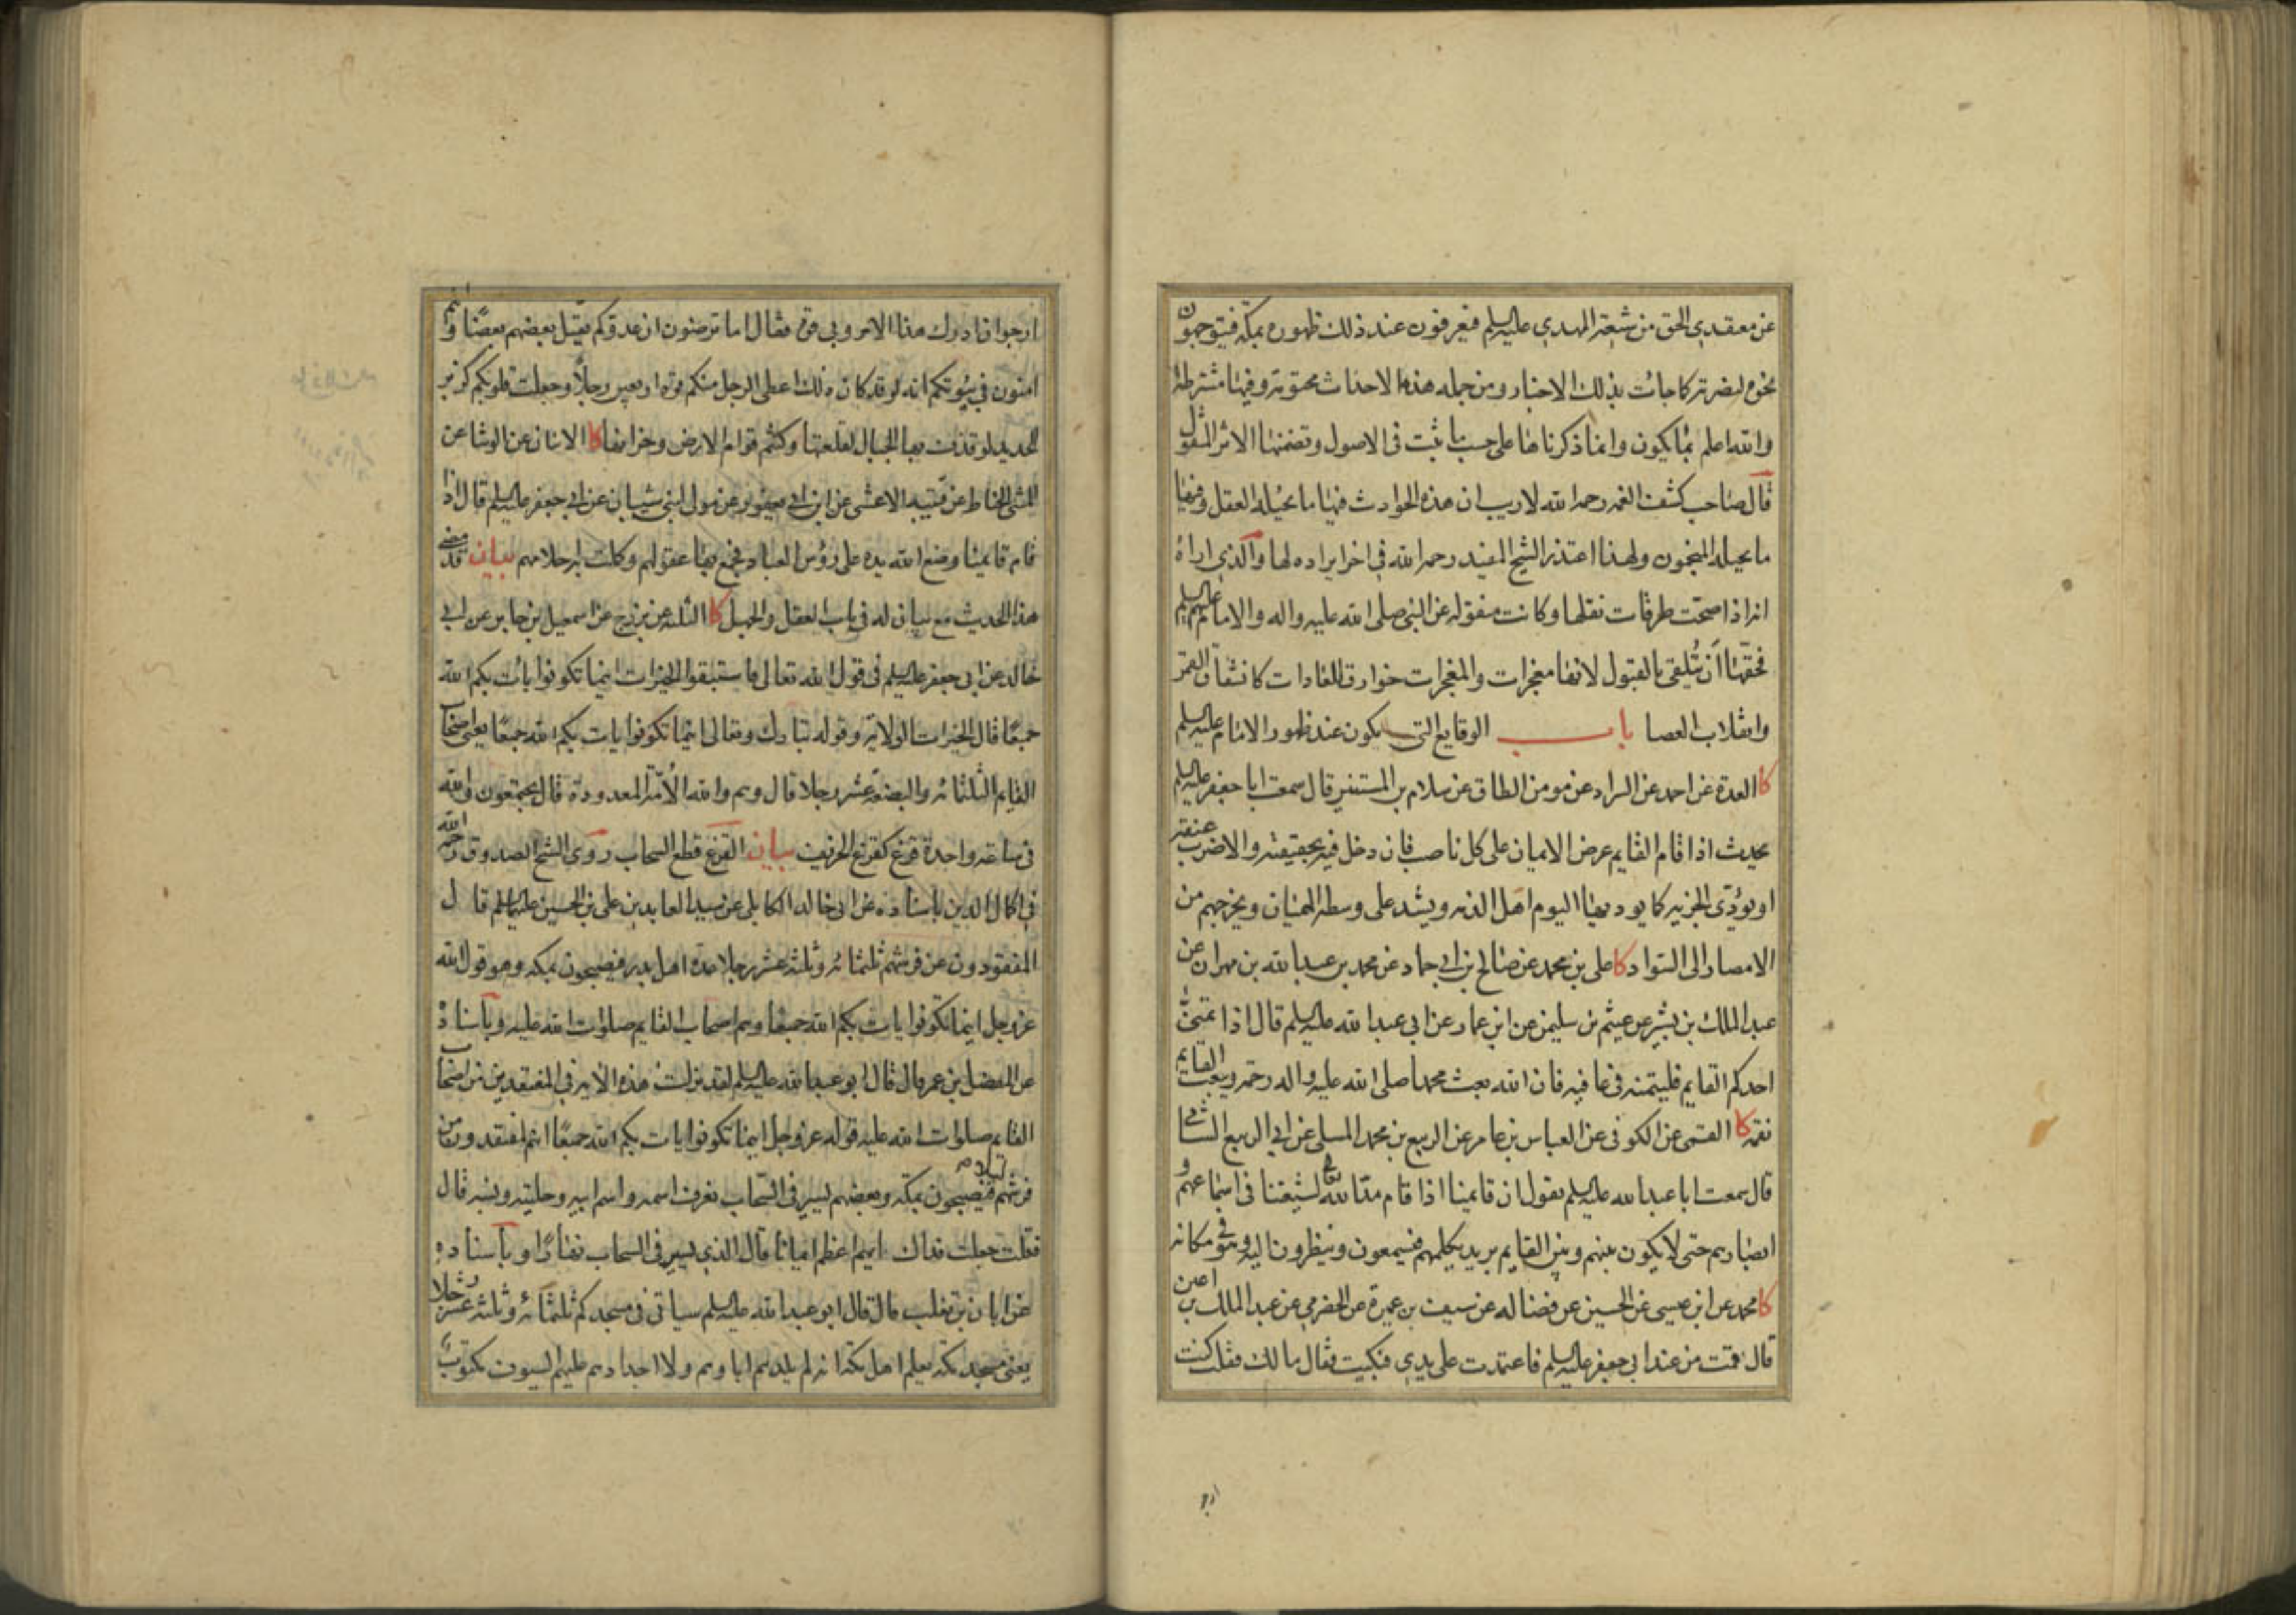 عن معتقدي الحق من شيعة المهدي عليه السلم فيعرفون عند ذلك ظهوره بمكة فيتوجهون
نحوه لنصرته كما جائت بذلك الاخبار ومن جمله هذه الاحداث محتومة وفيها مشترطة
والله اعلم بما يكون وانما ذكرناها على حسب ما ثبت في الاصول وتضمنها الاثر المنقول
قال صاحب كشف الغمه رحمه الله لا ريب ان هذه الحوادث فيها ما يحيله العقل وفيها
ما يحيله المنجمون ولهذا اعتذر الشيخ المفيد رحمه الله في اخر ايراده لها والذي اراه
انه اذا صحت طرقات نقلها وكانت منقوله عن النبي صلى الله عليه واله والامام عليهم السلم
فحقها أن تُلقى بالقبول لانها معجزات والمعجزات خوارق للعادات كانشقاق القمر
وانقلاب العصا باب الوقايع التي يكون عند ظهور الامام عليه السلم
كا العدة عن احمد عن السراد عن مومن الطاق عن سلام بن المستنير قال سمعت ابا جعفر عليه السلم
يحدث اذا قام القايم عرض الايمان على كل ناصب فان دخل فيه بحقيقته والا ضرب عنقه
او يؤدّى الجزيه كما يوديها اليوم اهل الذمه ويشد على وسطه الهميان ويخرجهم من
الامصار الى السواد كا علي بن محمد عن صالح بن ابي حماد عن محمد بن عبد الله بن مهران عن
عبد الملك بن بشير عن عيثم بن سليمن عن ابن عمار عن ابي عبد الله عليه السلم قال اذا تمنىّ
احدكم القايم فليتمنه في عافيه فان الله بعث محمدا صلى الله عليه واله رحمة ويبعث القايم
نقمه كا القمى عن الكوفي عن العباس بن عامر عن الربيع بن محمد المسلى عن ابي الربيع الشامي
قال سمعت ابا عبد الله عليه السلم يقول ان قايمنا اذا قام مدّ الله لشيعتنا في اسماعهم و
ابصارهم حتى لا يكون بينهم وبين القايم بريد يكلمهم فيسمعون وينظرون اليه وهو في مكانه
كا محمد عن ابن عيسى عن الحسين عن فضاله عن سيف بن عميرة عن الحضرمي عن عبد الملك بن اعين
قال قمت من عند ابي جعفر عليه السلم فاعتمدت على يدي فبكيت فقال مالك فقلت كنت
ارجوا
ارجوا ان ادرك هذا الامر وبي قوة فقال اما ترضون ان عدوكم يقتل بعضهم بعضًا وانتم
امنون في بيوتكم انه لو قد كان ذلك اعطى الرجل منكم قوة اربعين رجلاً وجعلت قلوبكم كزبر
الحديد لو قذفت بها الجبال لقلعتها وكنتم قوام الارض وخزانها كا الاثنان عن الوشا عن
المثنى الحناط عن قتيبه الاعشى عن ابن ابي يعفور عن مولى لبني شيبان عن ابي جعفر عليه السلم قال اذا
قام قايمنا وضع الله يده على رؤس العباد فجمع بها عقولهم وكملت به احلامهم بيان قد مضى
هذا الحديث مع بيان له في باب العقل والجهل كا الثلثه عن بزرج عن اسمعيل بن جابر عن ابي
خالد عن ابي جعفر عليه السلم في قول الله تعالى فاستبقوا الخيرات اينما تكونوا يأت بكم الله
جميعًا قال الخيرات الولاية وقوله تبارك وتعالى اينما تكونوا يات بكم الله جميعًا يعنى اصحاب
القايم الثلثمائه والبضعة عشر رجلا قال وهم والله الأمّة المعدودة قال يجتمعون والله
في ساعة واحدة قزع كقزع الخريف بيان القزع قطع السحاب روى الشيخ الصدوق رحمه الله
في اكمال الدين باسناده عن ابي خالد الكابلى عن سيد العابدين علي بن الحسين عليهما السلم قال
المفقودون عن فرشهم ثلثمائه وثلثه عشر رجلا عدة اهل بدر فيصبحون بمكه وهو قول الله
عز وجل اينما تكونوا يات بكم الله جميعا وهم اصحاب القايم صلوات الله عليه وبأسناده
عن المفضل بن عمر قال قال ابو عبد الله عليه السلم لقد نزلت هذه الاية في المفتقدين من اصحاب
القايم صلوات الله عليه قوله عز وجل اينما تكونوا يات بكم الله جميعًا انهم لمفتقدون من
فرشهم ليلا فيصبحون بمكه وبعضهم يسير في السحاب يعرف اسمه واسم ابيه وحليته ونسبه قال
فقلت جعلت فداك ايهم اعظم ايمانا قال الذي يسير في السحاب نهارًا وبأسناده
عن ابان بن تغلب قال قال ابو عبد الله عليه السلم سياتى في مسجدكم ثلثمائه وثلثه عشر رجلا
يعنى مسجد مكة يعلم اهل مكة انه لم يلدهم اباوهم ولا اجدادهم عليهم السيوف مكتوبٌ